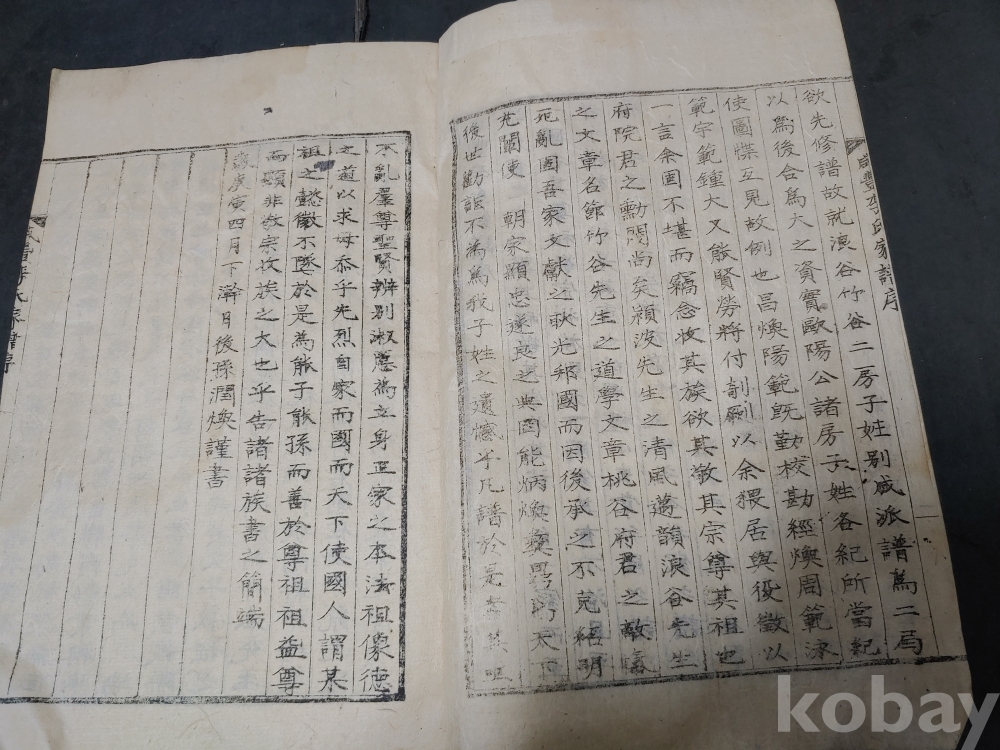 咸豐李氏家譜序
欲先修譜故就漁谷竹谷二房子姓别成派譜為二局
以為後合為大之資實歐陽公諸房子姓各紀所當紀
使圖牒互見故例也昌煥陽範既勤校勘經煥周範泳
範宗範鍾大又能賢勞將付剞劂以余猥居與役徵以
一言余固不堪而竊念收其族欲其敬其宗尊其祖也
府院君之勳閥尚矣潁波先生之清風邁韻浪谷先生
之文章名節竹谷先生之道學文章桃谷府君之敵愾
死亂固吾家文獻之耿光邦國而因後承之不克紹明
尤闕使 朝家顯忠遂良之典罔能炳煥 天下
後世 不為為我子姓之遺憾乎凡譜於是
不亂羣尊聖賢辨别淑慝為立身正家之本法祖像德
之道以求毋忝乎先烈自家而國而天下使國人謂某
祖之懿徽不墜於是為能子能孫而善於尊祖祖益尊
而顯非敬宗收族之大也乎告諸諸族書之簡端
歲庚寅四月下澣日後孫潤煥謹書
kobay